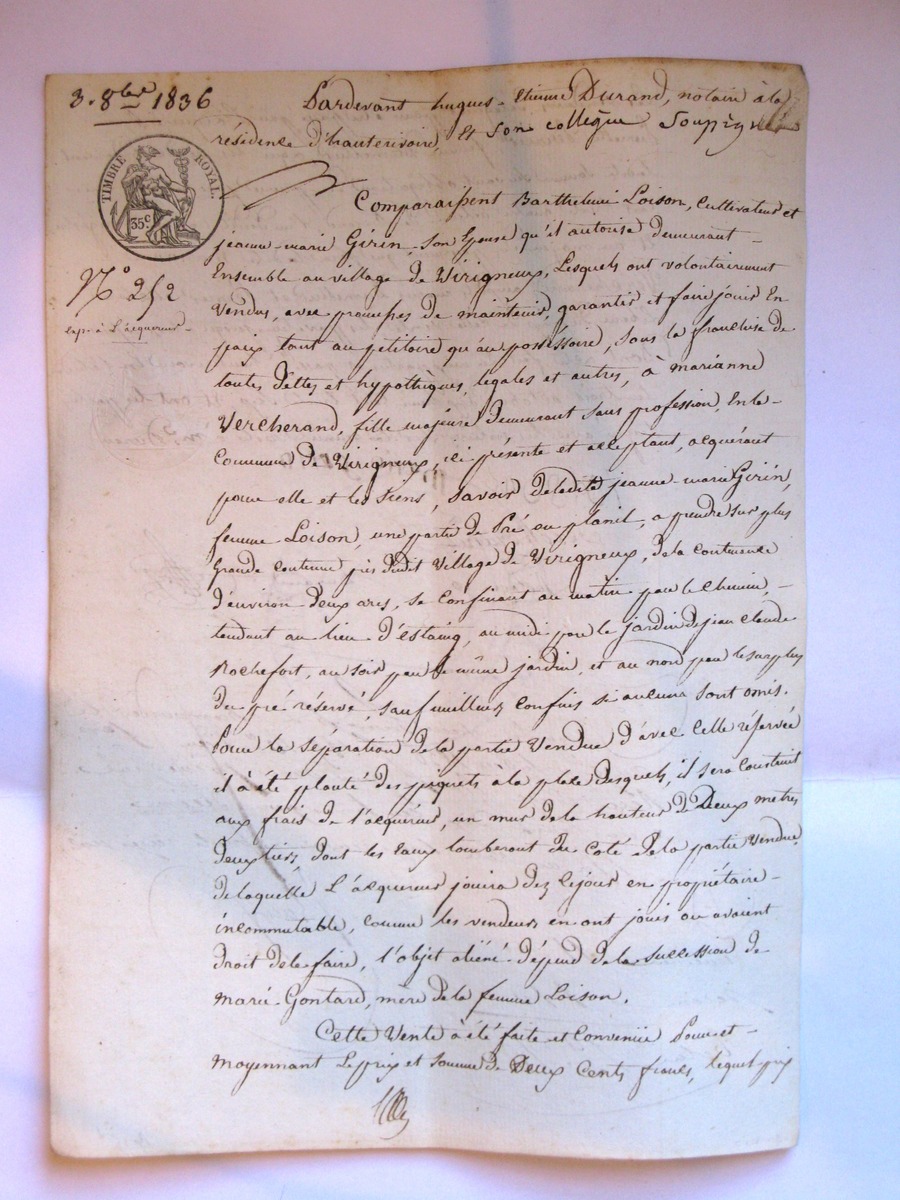 3. 8bre 1836
Pardevant hugues-Etienne Durand, notaire à la
résidence d'hauterivoire, et son collegue Soussigné
TIMBRE ROYAL.
35c
Comparaissent Barthelemi Loison, Cultivateur et
jeanne-marie Girin, son Epouse qu'il autorise demeurant
Ensemble au village de Virigneux, Lesquels ont volontairement
N° 252
Vendus, avec promesses de maintenir, garantir et faire jouir En
Exp. à L'acquereur
paix tant au petitoire qu'au possessoire, sous la franchise de
toutes dettes et hypothèques, legales et autres, à marianne
Vercherand, fille majeure demeurant sans profession, En la
Commune de Virigneux, ici présente et acceptant, acquérant
pour elle et les siens, savoir de ladite jeanne-marie Girin,
femme Loison, une partie de Pré ou planil, a prendre sur plus
Grande contenue près dudit Village de Virigneux, de la contenance
d'environ deux ares, se confinant au matin par le chemin,
tendant au lieu d'estaing, au midi par le jardin de jean Claude
Rochefort, au soir par le même jardin, et au nord par le surplus
du pré réservé, sauf meilleurs confins si aucuns sont omis.
Pour la séparation de la partie Vendue d'avec celle réservée
il à été planté des piquets à la place desquels, il sera Construit
aux frais de l'acquereur, un mur de la hauteur de Deux metres
deux tiers, dont les Eaux tomberont du coté de la partie vendue,
de laquelle L'acquereur jouira dez ce jour en propriétaire
incommutable, comme les vendeurs en ont jouis ou avaient
droit de le faire, l'objet aliéné dépend de la succession de
Marie Gontard, mère de la femme Loison.
Cette Vente à été faite et Convenue Pour et
moyennant Le prix et somme de Deux Cents francs, lequel prix